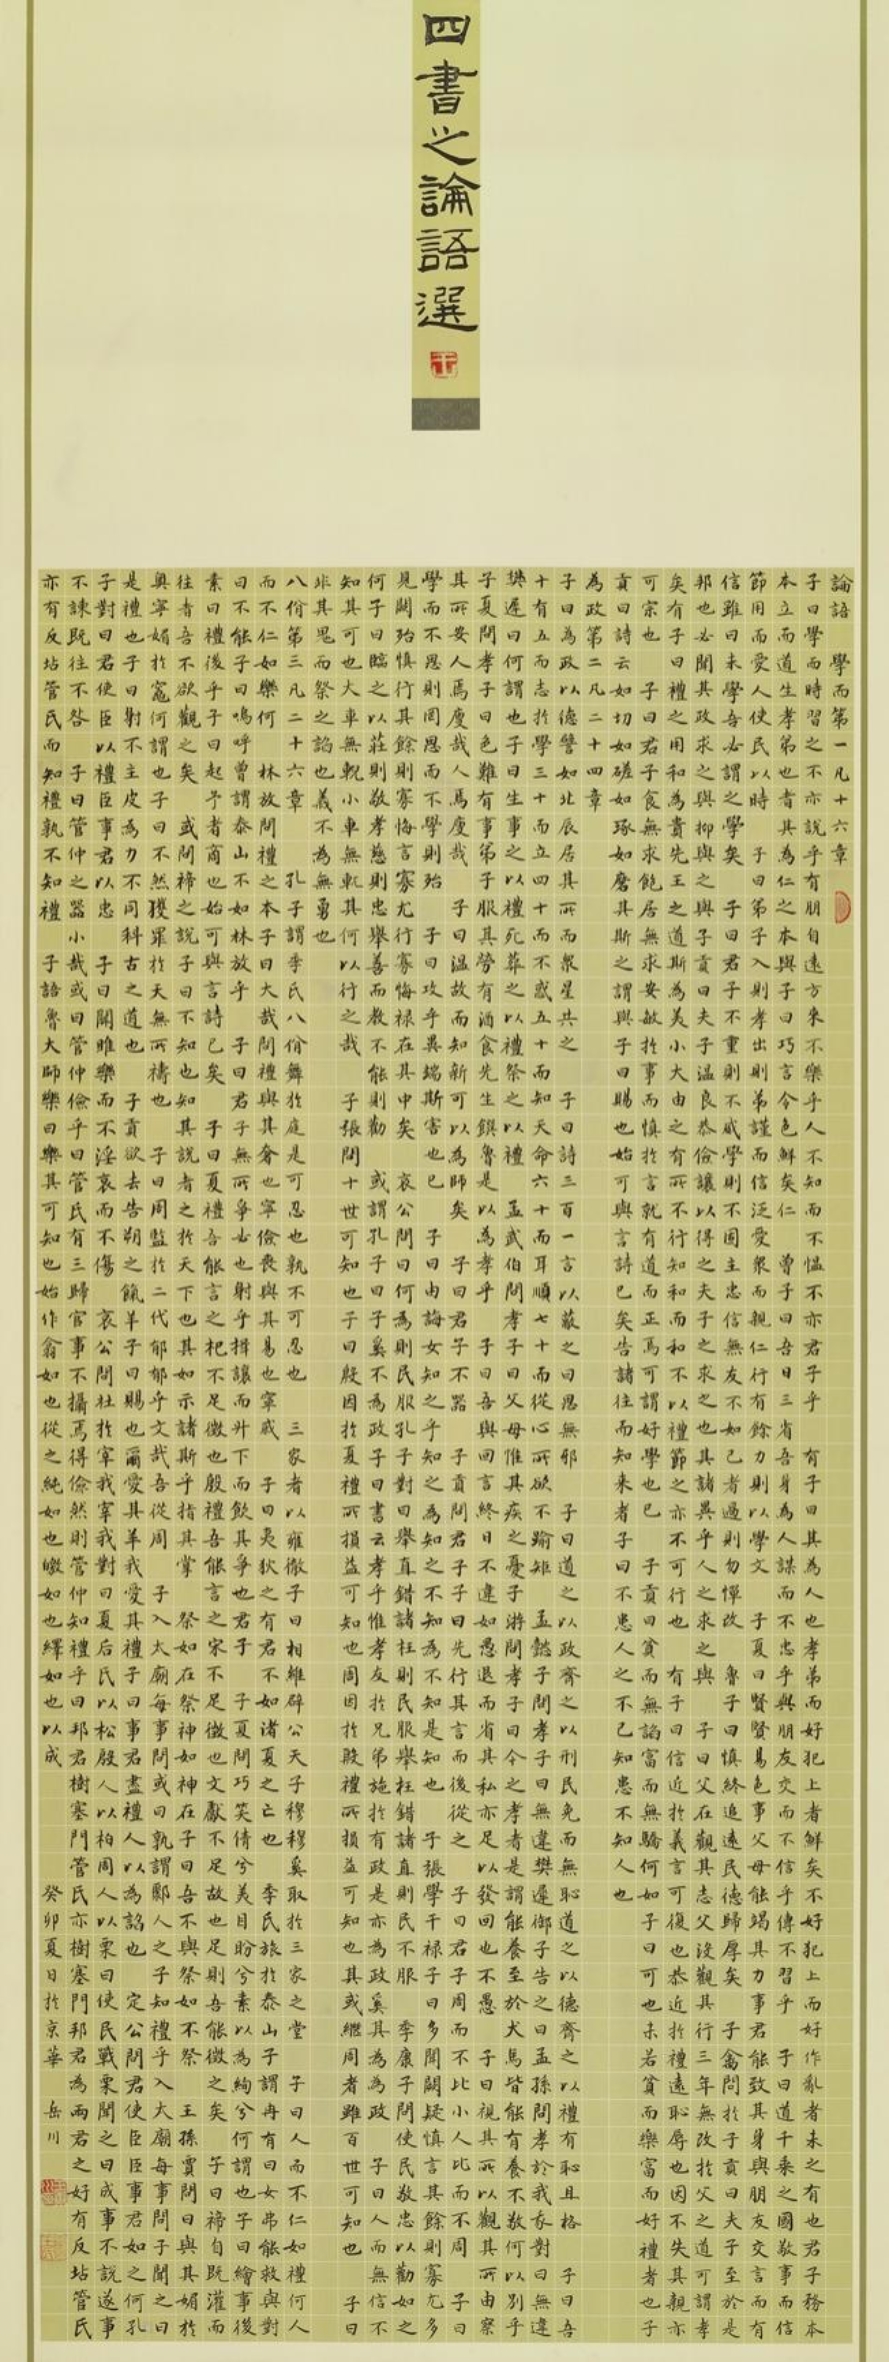 四書之論語選
論語 學而第一凡十六章
子曰學而時習之不亦說乎有朋自遠方來不樂乎人不知而不慍不亦君子乎 有子曰其為人也孝弟而好犯上者鮮矣不好犯上而好作亂者未之有也君子務本
本立而道生孝弟也者其為仁之本與子曰巧言令色鮮矣仁 曾子曰吾日三省吾身為人謀而不忠乎與朋友交而不信乎傳不習乎 子曰道千乘之國敬事而信
節用而愛人使民以時 子曰弟子入則孝出則弟謹而信泛愛衆而親仁行有餘力則以學文 子夏曰賢賢易色事父母能竭其力事君能致其身與朋友交言而有
信雖曰未學吾必謂之學矣 子曰君子不重則不威學則不固主忠信無友不如己者過則勿憚改 魯子曰慎終追遠民德歸厚矣 子禽問於子貢曰夫子至於是
邦也必聞其政求之與抑與之與子貢曰夫子溫良恭儉讓以得之夫子之求之也其諸異乎人之求之與 子曰父在觀其志父没觀其行三年無改於父之道可謂孝
矣有子曰禮之用和為貴先王之道斯為美小大由之有所不行知和而和不以禮節之亦不可行也 有子曰信近於義言可復也恭近於禮遠恥辱也因不失其親亦
可宗也 子曰君子食無求飽居無求安敏於事而慎於言就有道而正焉可謂好學也已 子貢曰貧而無諂富而無驕何如子曰可也未若貧而樂富而好禮者也子
貢曰詩云如切如磋如琢如磨其斯之謂與子曰賜也始可與言詩已矣告諸往而知来者子曰不患人之不己知患不知人也
為政第二凡二十四章
子曰為政以德譬如北辰居其所而衆星共之 子曰詩三百一言以蔽之曰思無邪 子曰道之以政齊之以刑民免而無恥道之以德齊之以禮有恥且格 子曰吾
十有五而志於學三十而立四十而不惑五十而知天命六十而耳順七十而從心所欲不踰矩 孟懿子問孝子曰無違樊遲御子告之曰孟孫問孝於我我對曰無違
樊遲曰何謂也子曰生事之以禮死葬之以禮祭之以禮 孟武伯問孝子曰父母惟其疾之憂子游問孝子曰今之孝者是謂能養至於犬馬皆能有養不敬何以別乎
子夏問孝子曰色難有事弟子服其勞有酒食先生饌魯是以為孝乎 子曰吾與回言終日不違如愚退而省其私亦足以發回也不愚 子曰視其所以觀其所由察
其所安人焉廋哉人焉廋哉 子曰温故而知新可以為師矣 子曰君子不器 子貢問君子子曰先行其言而後從之 子曰君子周而不比小人比而不周 子曰
學而不思則罔思而不學則殆 子曰攻乎異端斯害也已 子曰由誨女知之乎知之為知之不知為不知是知也 子張學干禄子曰多聞闕疑慎言其餘則寡尤多
見闕殆慎行其餘則寡悔言寡尤行寡悔禄在其中矣 哀公問曰何為則民服孔子對曰舉直錯諸枉則民服舉枉錯諸直則民不服 季康子問使民敬忠以勸如之
何子曰臨之以莊則敬孝慈則忠舉善而教不能則勸 或謂孔子曰子奚不為政子曰書云孝乎惟孝友於兄弟施於有政是亦為政奚其為為政 子曰人而無信不
知其可也大車無輗小車無軏其何以行之哉 子張問十世可知也子曰殷因於夏禮所損益可知也周因於殷禮所損益可知也其或繼周者雖百世可知也 子曰
非其鬼而祭之諂也義不為無勇也
八佾第三凡二十六章 孔子謂季氏八佾舞於庭是可忍也孰不可忍也 三家者以雍徹子曰相維辟公天子穆穆奚取於三家之堂 子曰人而不仁如禮何人
而不仁如樂何 林放問禮之本子曰大哉問禮與其奢也寧儉喪與其易也寧戚 子曰夷狄之有君不如诸夏之亡也 季氏旅於泰山子謂冉有曰女弗能救與對
曰不能子曰嗚呼曾謂泰山不如林放乎 子曰君子無所爭必也射乎揖讓而升下而飲其爭也君子 子夏問巧笑倩兮美目盼兮素以為絢兮何謂也子曰繪事後
素曰禮後乎子曰起予者商也始可與言詩已矣 子曰夏禮吾能言之杞不足徵也殷禮吾能言之宋不足徵也文獻不足故也足則吾能徵之矣 子曰禘自既灌而
往者吾不欲觀之矣 或問禘之説子曰不知也知其説者之於天下也其如示諸斯乎指其掌 祭如在祭神如神在子曰吾不與祭如不祭 王孫賈問曰與其媚於
奧寧媚於竈何謂也子曰不然獲罪於天無所禱也 子曰周監於二代郁郁乎文哉吾從周 子入太廟每事問或曰孰謂鄹人之子知禮乎入大廟每事問子聞之曰
是禮也子曰射不主皮為力不同科古之道也 子貢欲去告朔之餼羊子曰賜也爾愛其羊我愛其禮子曰事君盡禮人以為諂也 定公問君使臣臣事君如之何孔
子對曰君使臣以禮臣事君以忠 子曰關雎樂而不淫哀而不傷 哀公問社於宰我宰我對曰夏后氏以松殷人以柏周人以栗曰使民戰栗聞之曰成事不説遂事
不諫既往不咎 子曰管仲之器小哉或曰管仲儉乎曰管氏有三歸官事不攝焉得儉然則管仲知禮乎曰邦君樹塞門管氏亦樹塞門邦君為兩君之好有反坫管氏
亦有反坫管氏而知禮孰不知禮 子語魯大師樂曰樂其可知也始作翕如也從之純如也皦如也繹如也以成 癸卯夏日於京華 岳川